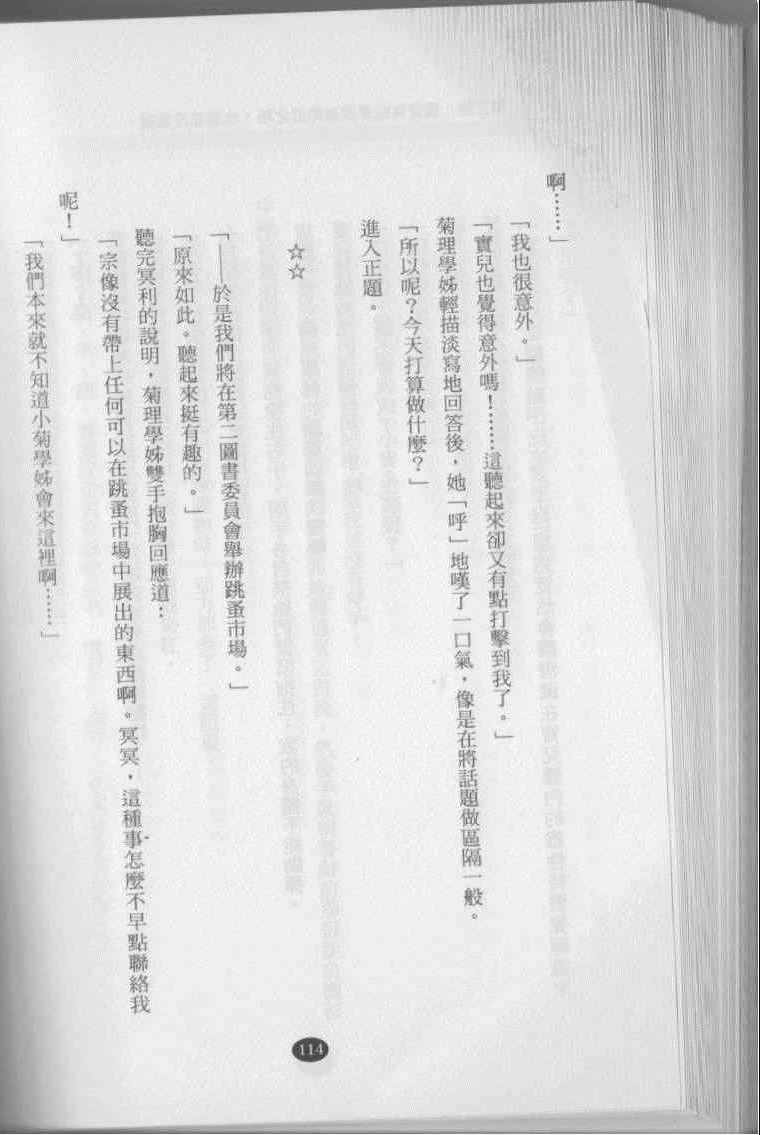 啊⋯⋯」
「我也很意外。」
「實兒也覺得意外嗎！⋯⋯這聽起來卻又有點打擊到我了。」
菊理學姊輕描淡寫地回答後，她「呼」地嘆了一口氣，像是在將話題做區隔一般。
「所以呢？今天打算做什麼？」
進入正題。
☆☆
「——於是我們將在第二圖書委員會舉辦跳蚤市場。」
「原來如此。聽起來挺有趣的。」
聽完冥利的說明，菊理學姊雙手抱胸回應道：
「宗像沒有帶上任何可以在跳蚤市場中展出的東西啊。冥冥，這種事怎麼不早點聯絡我
呢！」
「我們本來就不知道小菊學姊會來這裡啊⋯⋯」
114